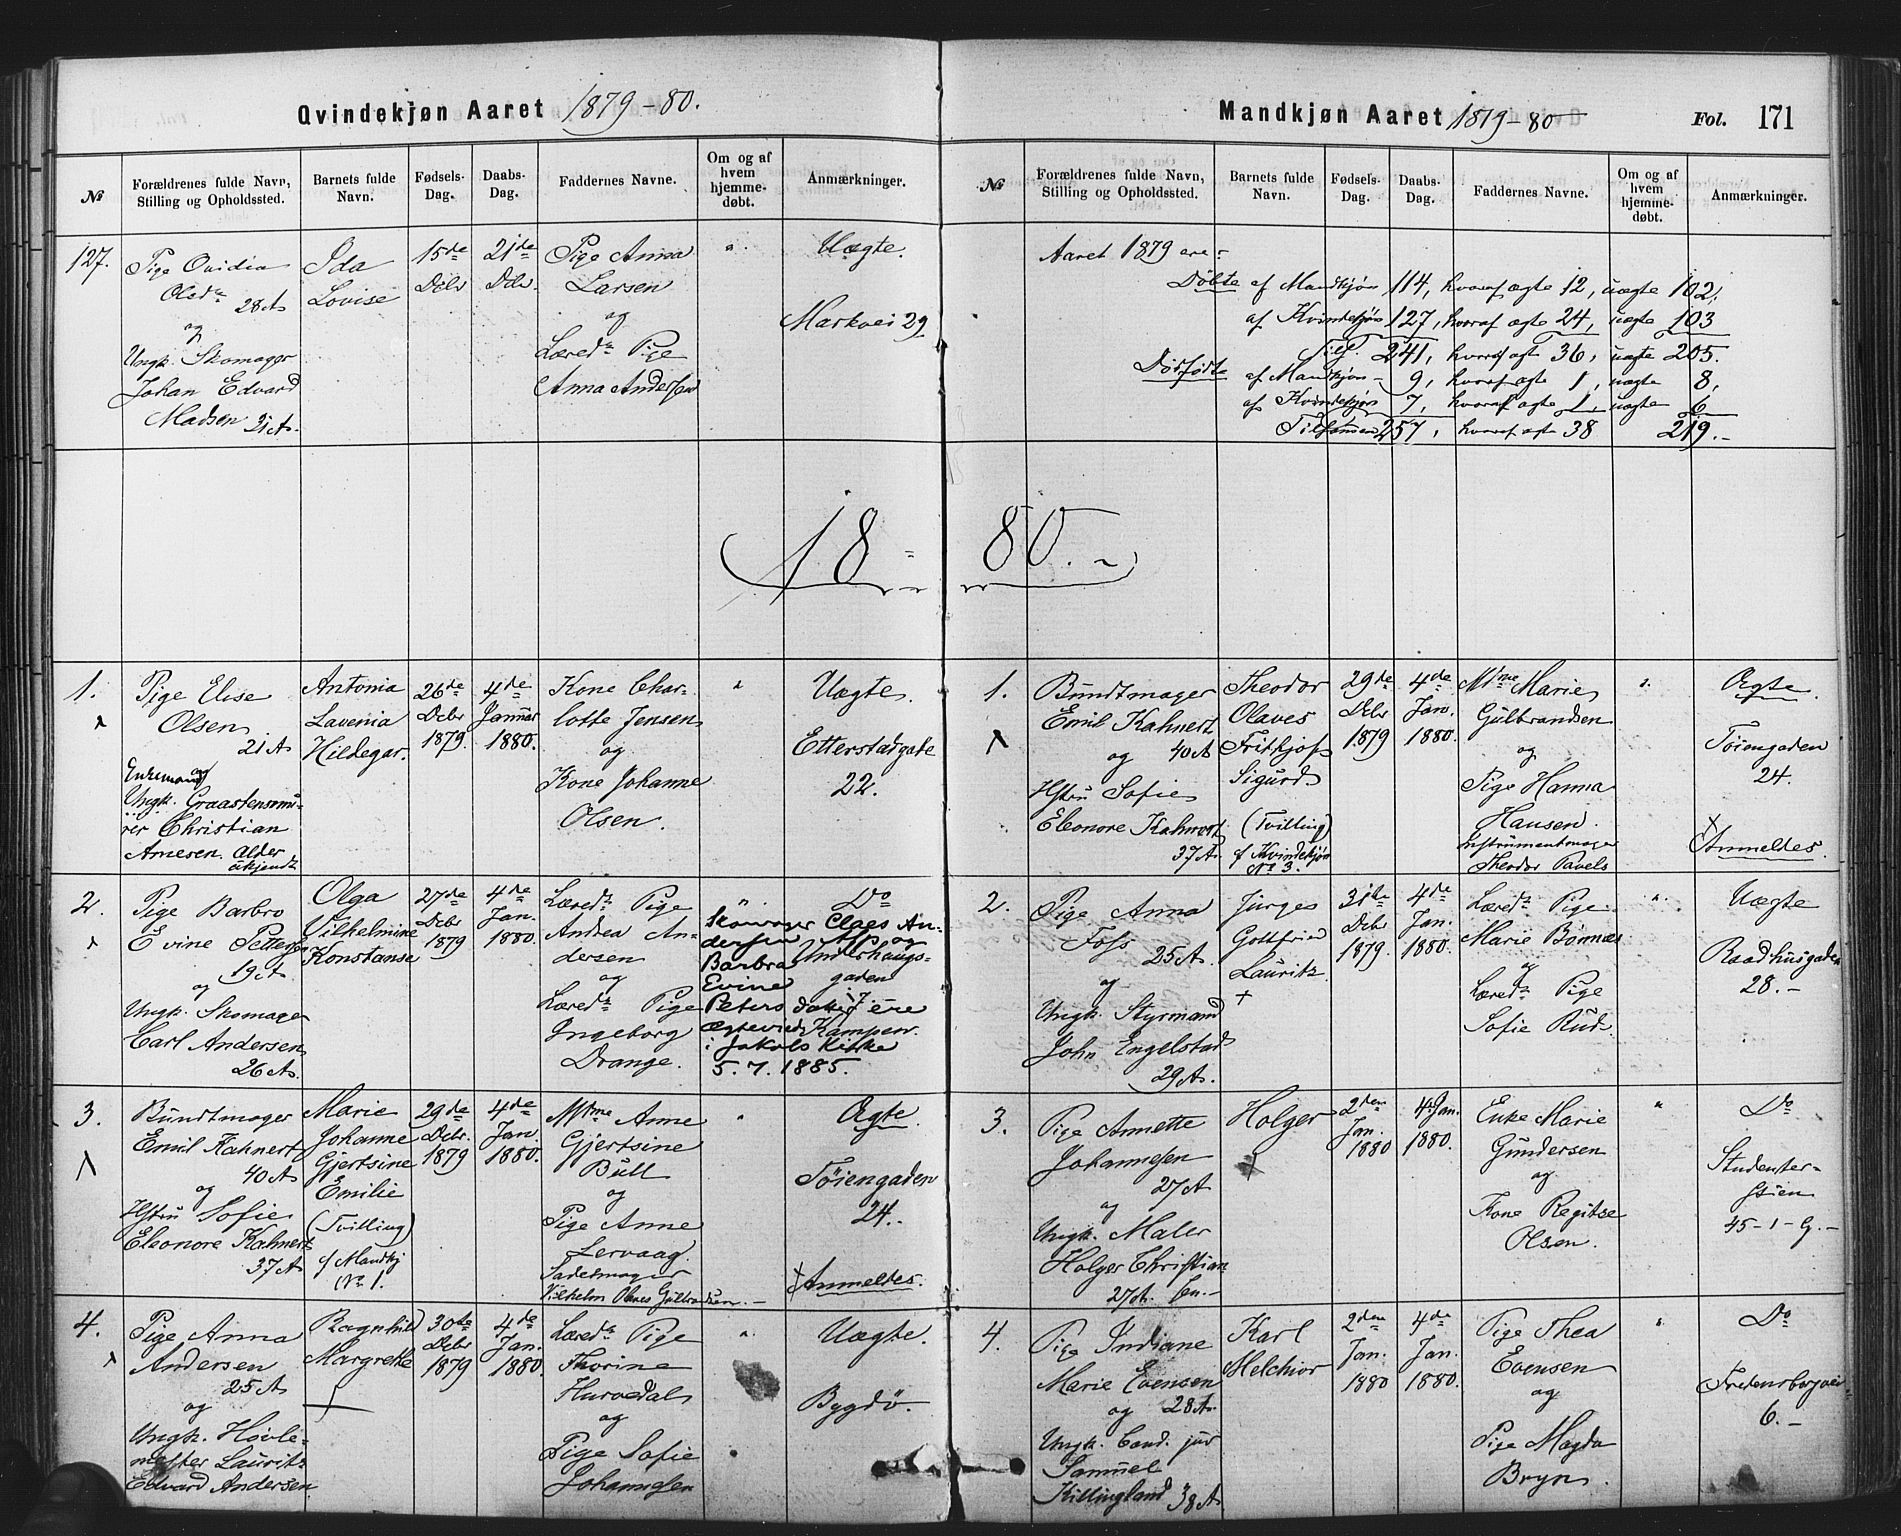 Qvindekjøn Aaret 1879-80.
№
Forældrenes fulde Navn, Stilling og Opholdssted.
Barnets fulde Navn.
Fødsels-Dag.
Daabs-Dag.
Faddernes Navne.
Om og af hvem hjemme-døbt.
Anmærkninger.
127.
Pige Ovidia
Olsdr
28 A
og
Ungk. Skomager
Johan Edvard
Madsen 21 A.
Ida
Lovise
15de
Dcbr
21de
Dcbr.
Pige Anna
Larsen
og
Læredr Pige
Anna Andersen
Uægte.
Markvei 29
18
1.
Pige Elise
Olsen
21 A
Enkemand
og
Ungk. Graastensmu-
rer Christian
Arnesen. Alder
ukjendt
Antonia
Lavenia
Hildegar.
26de
Debr
1879.
4de
Januar
1880.
Kone Char-
lotte Jensen
og
Kone Johanne
Olsen.
Uægte.
Etterstadgate
22.
2.
Pige Barbro
Evine Petterson
19 A
og
Ungk. Skomager
Carl Andersen
26 A.
Olga
Vilhelmine
Konstanse
27de
Debr
1879
4de
Jan.
1880.
Læredr Pige
Andrea An-
dersen
og
Læredr Pige
Ingeborg
Drange.
Do
Skomager Claes An-
dersen
og
Barbra
Evine
Peters datter ere
ægteviede
i Jakobs Kirke
5.7.1885.
Underhaugs-
gaden
7
Kampen.
3.
Bundtmager
Emil Kahnert
40 A
og
Hstru Sofie
Eleonore Kahnert
37 A
Marie
Johanne
Gjertsine
Emilie
(Tvilling)
cf Mandkj
No 1.
29de
Debr.
1879
4de
Jan.
1880.
Mme Anne
Gjertsine
Bull
og
Pige Anne
Lervaag.
Sadelmager
Vilhelm Olaves Gulbrandsen.
Ægte.
Tøiengaden
24.
Anmeldes.
4.
Pige Anna
Andersen
25 A
og
Ungk. Høvle-
mester Lauritz
Edvard Andersen
Ragnhild
Margrethe
30te
Debr
1879
4de
Jan.
1880.
Læredr Pige
Thorine
Hurvedal
og
Pige Sofie
Johannesen
Uægte.
Bygdø.
Mandkjøn Aaret 1879-80
Fol. 171
№
Forældrenes fulde Navn, Stilling og Opholdssted.
Barnets fulde Navn.
Fødsels-Dag.
Daabs-Dag.
Faddernes Navne.
Om og af hvem hjemme-døbt.
Anmærkninger.
Aaret 1879 ere:
Døbte af Mandkjøn 114, hvoraf ægte 12, uægte 102.
af Kvindekjøn 127, hvoraf ægte 24, uægte 103
Tils. 241, hvoraf ægte 36, uægte 205.
Dødfødte af Mandkjøn 9, hvoraf ægte 1, uægte 8,
af Kvindekjøn 7, hvoraf ægte 1, uægte 6
Tilsammen 257, hvoraf ægte 38 219.-
80.
1.
Bundtmager
Emil Kahnert
40 A
og
Hstru Sofie
Eleonore Kahnert
37 A.
Theodor
Olaves
Fritkjof
Sigurd
(Tvilling)
cf Kvindekjøn
No 3.
29de
Debr
1879
4de
Jan.
1880.
Mme Marie
Gulbrandsen
og
Pige Hanna
Hansen.
Instrumentmager
Theodor Pavels
Ægte.
Tøiengaden
24.
Anmeldes.
2.
Pige Anna
Foss
25 A.
og
Ungk. Styrmand
John Engelstad
29 A.
Jürges
Gottfried
Lauritz
31te
Debr
1879.
4de
Jan.
1880.
Læredr Pige
Marie Bønnæs
og
Læredr Pige
Sofie Rud.
Uægte
Raadhusgaden
28.-
3.
Pige Annette
Johannesen
27 A
og
Ungk. Maler
Holger Christian-
27 A. sen.-
Holger
2den
Jan.
1880
4 Jan.
1880.
Enke Marie
Gundersen
og
Kone Regitse
Olsen.
Do
Studenter-
stien
45-1-G.-
4.
Pige Indiane
Marie Evensen
og 28 A.
Ungk. Cand. jur
Samuel
Killingland 38 A
Karl
Melchior
2den
Jan.
1880
4de
Jan.
1880.
Pige Thea
Evensen
og
Pige Magda
Bryn.
Do
Fredensborgvei
6.-